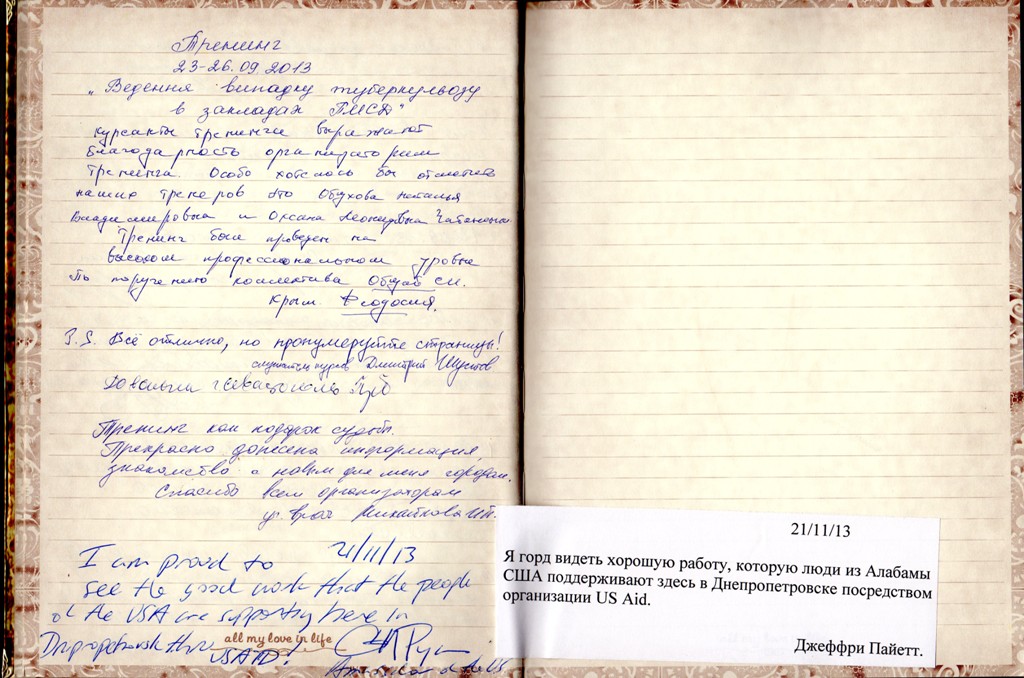 Тренинг
23-26.09.2013
„Ведення випадку туберкульозу
в закладах ПМСД"
Курсанты тренинга выражают
благодарность организаторам
тренинга. Особо хотелось бы отметить
наших тренеров это Обухова Наталья
Владимировна и Оксана Леонидовна
Тренинг был проведен на
высоком профессиональном уровне
По поручению коллектива
Крым Феодосия.
P.S. Всё отлично, но пронумеруйте страницы!
Дмитрий Шустов
Тренинг как подарок судьбы.
Прекрасно донесена информация,
знакомство с новым для меня городом.
Спасибо всем организаторам
уч. врач Михайлова
21/11/13
I am proud to
see the good work that the people
of the USA are supporting here in
Dnipropetrovsk thru
all my love in life
USAID!
21/11/13
Я горд видеть хорошую работу, которую люди из Алабамы
США поддерживают здесь в Днепропетровске посредством
организации US Aid.
Джеффри Пайетт.